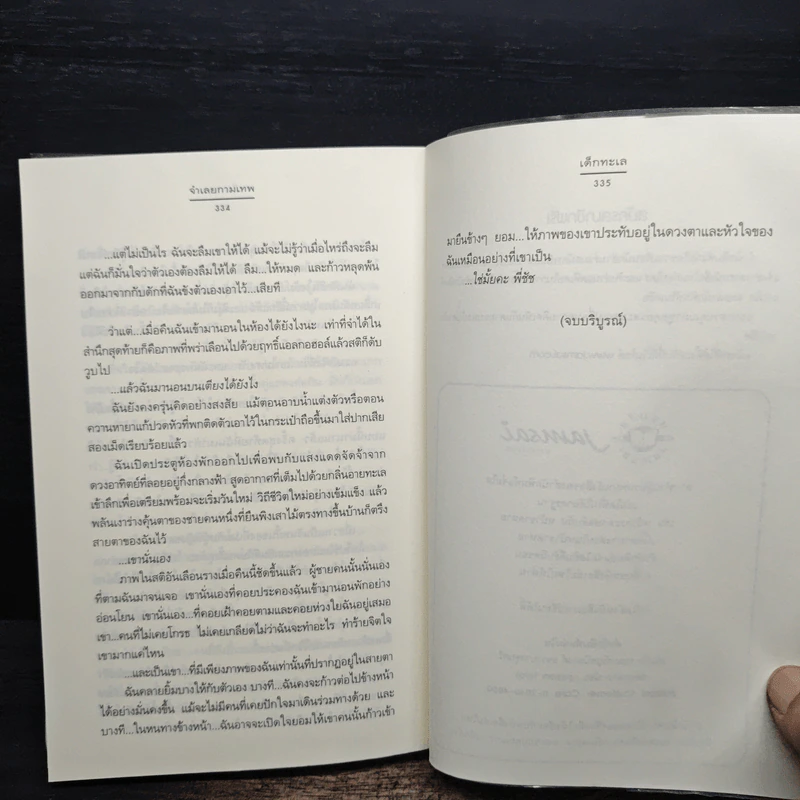 จำเลยกามเทพ
334
...แต่ไม่เป็นไร ฉันจะลืมเขาให้ได้ แม้จะไม่รู้ว่าเมื่อไหร่ถึงจะลืม
แต่ฉันก็มั่นใจว่าตัวเองต้องลืมให้ได้ ลืม...ให้หมด และก้าวหลุดพ้น
ออกมาจากกับดักที่ฉันขังตัวเองเอาไว้...เสียที
ว่าแต่...เมื่อคืนฉันเข้ามานอนในห้องได้ยังไงนะ เท่าที่จำได้ใน
สำนึกสุดท้ายก็คือภาพที่พร่าเลือนไปด้วยฤทธิ์แอลกอฮอล์แล้วสติก็ดับ
วูบไป
...แล้วฉันมานอนบนเตียงได้ยังไง
ฉันยังคงครุ่นคิดอย่างสงสัย แม้ตอนอาบน้ำแต่งตัวหรือตอน
ควานหายาแก้ปวดหัวที่พกติดตัวเอาไว้ในกระเป๋าถือขึ้นมาใส่ปากเสีย
สองเม็ดเรียบร้อยแล้ว
ฉันเปิดประตูห้องพักออกไปเพื่อพบกับแสงแดดจัดจ้าจาก
ดวงอาทิตย์ที่ลอยอยู่กึ่งกลางฟ้า สูดอากาศที่เต็มไปด้วยกลิ่นอายทะเล
เข้าลึกเพื่อเตรียมพร้อมจะเริ่มวันใหม่ วิถีชีวิตใหม่อย่างเข้มแข็ง แล้ว
พลันเงาร่างคุ้นตาของชายคนหนึ่งที่ยืนพิงเสาไม้ตรงทางขึ้นบ้านก็ตรึง
สายตาของฉันไว้
...เขานั่นเอง
ภาพในสติอันเลือนรางเมื่อคืนนี้ชัดขึ้นแล้ว ผู้ชายคนนั้นนั่นเอง
ที่ตามฉันมาจนเจอ เขานั่นเองที่คอยประคองฉันเข้ามานอนพักอย่าง
อ่อนโยน เขานั่นเอง...ที่คอยเฝ้าคอยตามและคอยห่วงใยฉันอยู่เสมอ
เขา...คนที่ไม่เคยโกรธ ไม่เคยเกลียดไม่ว่าฉันจะทำอะไร ทำร้ายจิตใจ
เขามากแค่ไหน
...และเป็นเขา...ที่มีเพียงภาพของฉันเท่านั้นที่ปรากฏอยู่ในสายตา
ฉันคลายยิ้มบางให้กับตัวเอง บางที...ฉันคงจะก้าวต่อไปข้างหน้า
ได้อย่างมั่นคงขึ้น แม้จะไม่มีคนที่เคยปักใจมาเดินร่วมทางด้วย และ
บางที...ในหนทางข้างหน้า...ฉันอาจจะเปิดใจยอมให้เขาคนนั้นก้าวเข้า
เด็กทะเล
335
มายืนข้างๆ ยอม...ให้ภาพของเขาประทับอยู่ในดวงตาและหัวใจของ
ฉันเหมือนอย่างที่เขาเป็น
...ใช่มั้ยคะ พี่ชัช
(จบบริบูรณ์)
jamsai